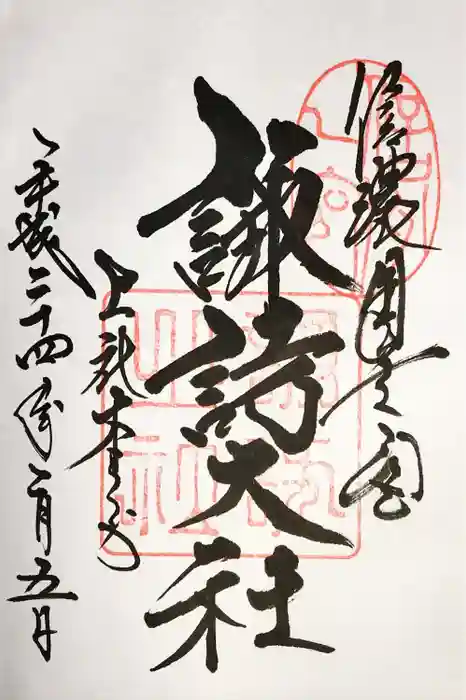 信濃國一之宮
諏訪大社
上社本宮
平成二十四年一月五日